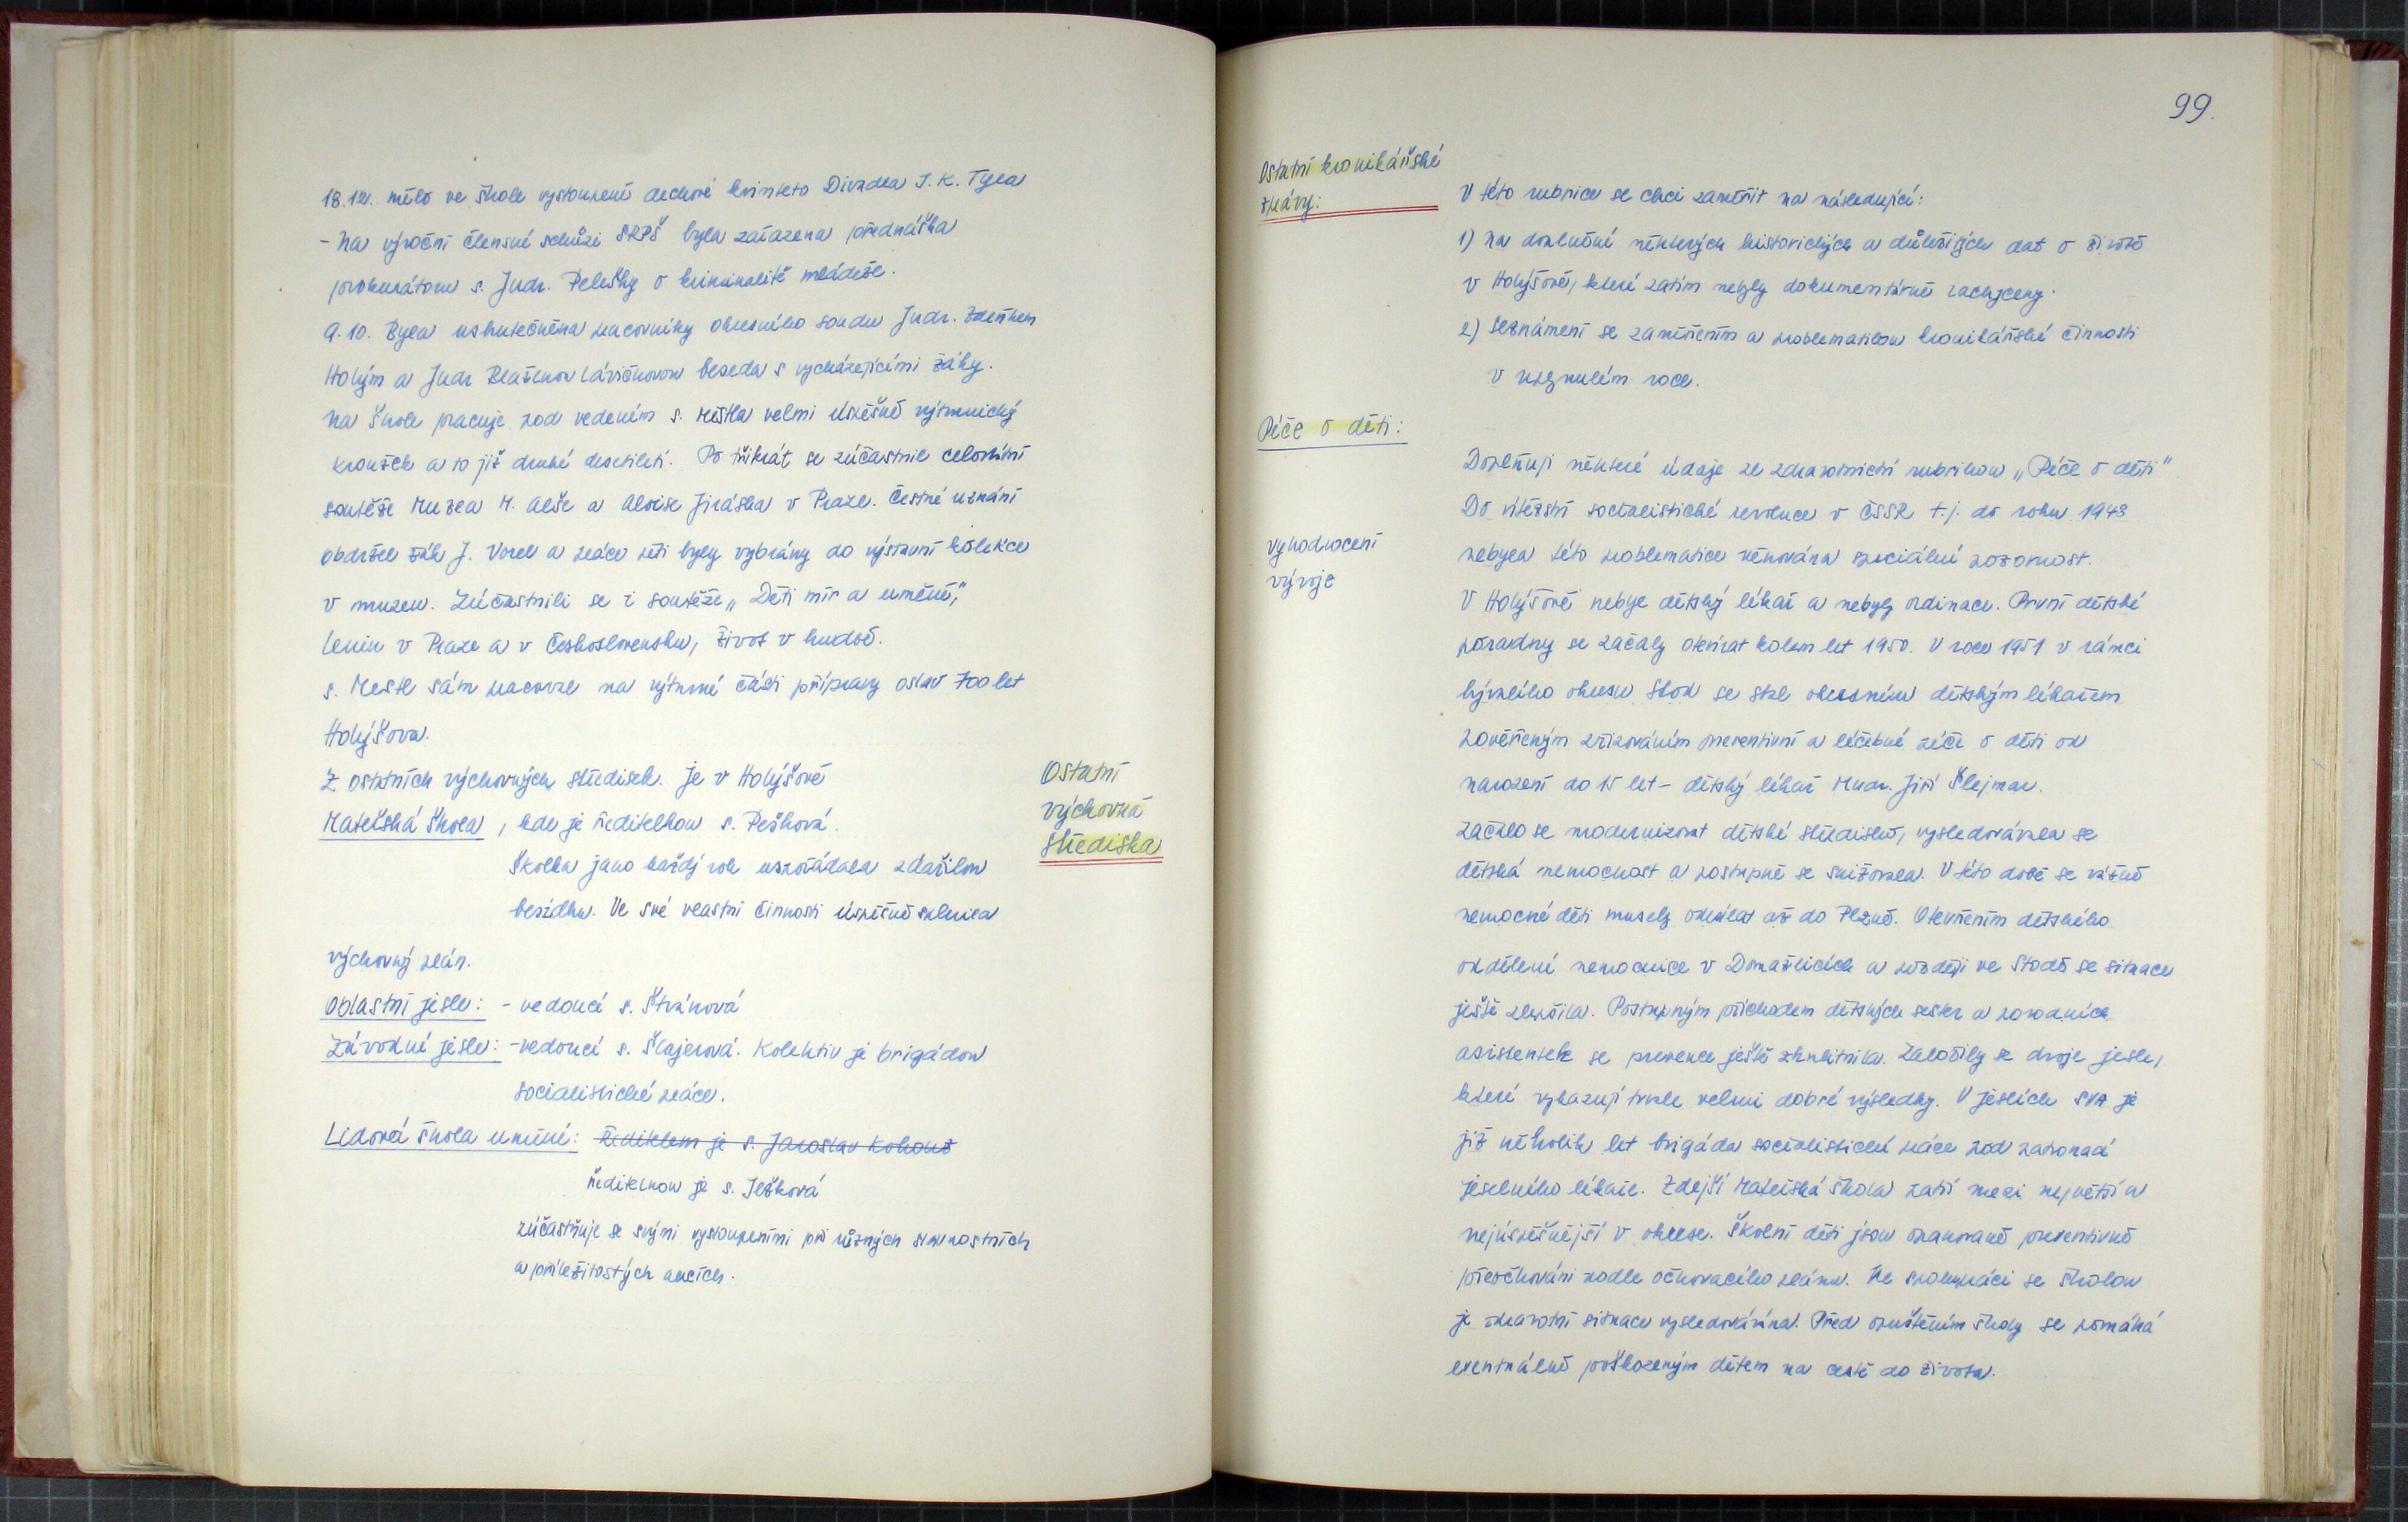 18.12. mělo ve škole vystoupení dechové kvinteto Divadla J. K. Tyla
- Na výroční členské schůzi SRPŠ byla zařazena přednáška
prokurátora s. Judr. Pelešky o kriminalitě mládeže.
9.10. Byla uskutečněna pracovníky okresního soudu Judr. Zdeňkem
Holým a Judr Blaženou Lávičkovou beseda s vycházejícími žáky.
Na škole pracuje pod vedením s. Městla velmi úspěšně výtvarnický
kroužek a to již druhé desetiletí. Po třikrát se zúčastnil celostátní
soutěže Muzea M. Alše a Aloise Jiráska v Praze. Čestné uznání
obdržel žák J. Vorel a práce pěti byly vybrány do výstavní kolekce
v muzeu. Zúčastnili se i soutěže „Děti mír a umění",
Lenin v Praze a v Československu, Život v hudbě.
s. Mestl sám pracoval na výtvarné části přípravy oslav 700 let
Holýšova.
Z ostatních výchovných středisek je v Holýšově
Ostatní
výchovná
střediska
Mateřská škola, kde je ředitelkou s. Pešková.
Školka jako každý rok uspořádala zdařilou
besídku. Ve své vlastní činnosti úspěšně splnila
výchovný plán.
Oblastní jesle: - vedoucí s. Štránová
Závodní jesle: - vedoucí s. Šlajerová. Kolektiv je brigádou
socialistické práce.
Lidová škola umění: Ředitelem je s. Jaroslav Kohout
ředitelkou je s. Ježková
zúčastňuje se svými vystoupeními při různých slavnostních
a příležitostých akcích.
99.
Ostatní kronikářské
zprávy:
V této rubrice se chci zaměřit na následující:
1) Na doplnění některých historických a důležitých dat o životě
v Holýšově, které zatím nebyly dokumentárně zachyceny.
2) Seznámení se zaměřením a problematikou kronikářské činnosti
v uplynulém roce.
Péče o děti:
Doplňuji některé údaje ze zdravotnictví rubrikou „Péče o děti"
Do vítězství socialistické revoluce v ČSSR t.j. do roku 1948
vyhodnocení
vývoje
nebyla této problematice věnována speciální pozornost.
V Holýšově nebyl dětský lékař a nebyly ordinace. První dětské
poradny se začaly otevírat kolem let 1950. V roce 1951 v rámci
bývalého okresu Stod se stal okresním dětským lékařem
pověřeným zřizováním preventivní a léčebné péče o děti od
narození do 15 let - dětský lékař Mudr. Jiří Šlejmar.
Začalo se modernizovat dětské středisko, vysledovávala se
dětská nemocnost a postupně se snižovala. V této době se vážně
nemocné děti musely odesílat až do Plzně. Otevřením dětského
oddělení nemocnice v Domažlicích a později ve Stodě se situace
ještě zlepšila. Postupným příchodem dětských sester a porodních
asistentek se prevence ještě zkvalitnila. Založily se dvoje jesle,
které vykazují trvale velmi dobré výsledky. V jeslích SVA je
již několik let brigáda socialistické práce pod patronací
jeselního lékaře. Zdejší Mateřská škola patří mezi největší a
nejúspěšnější v okrese. Školní děti jsou opakovaně preventivně
přeočkováni podle očkovacího plánu. Ve spolupráci se školou
je zdravotní situace vysledovávána. Před opuštěním školy se pomáhá
eventuálně poškozeným dětem na cestě do života.